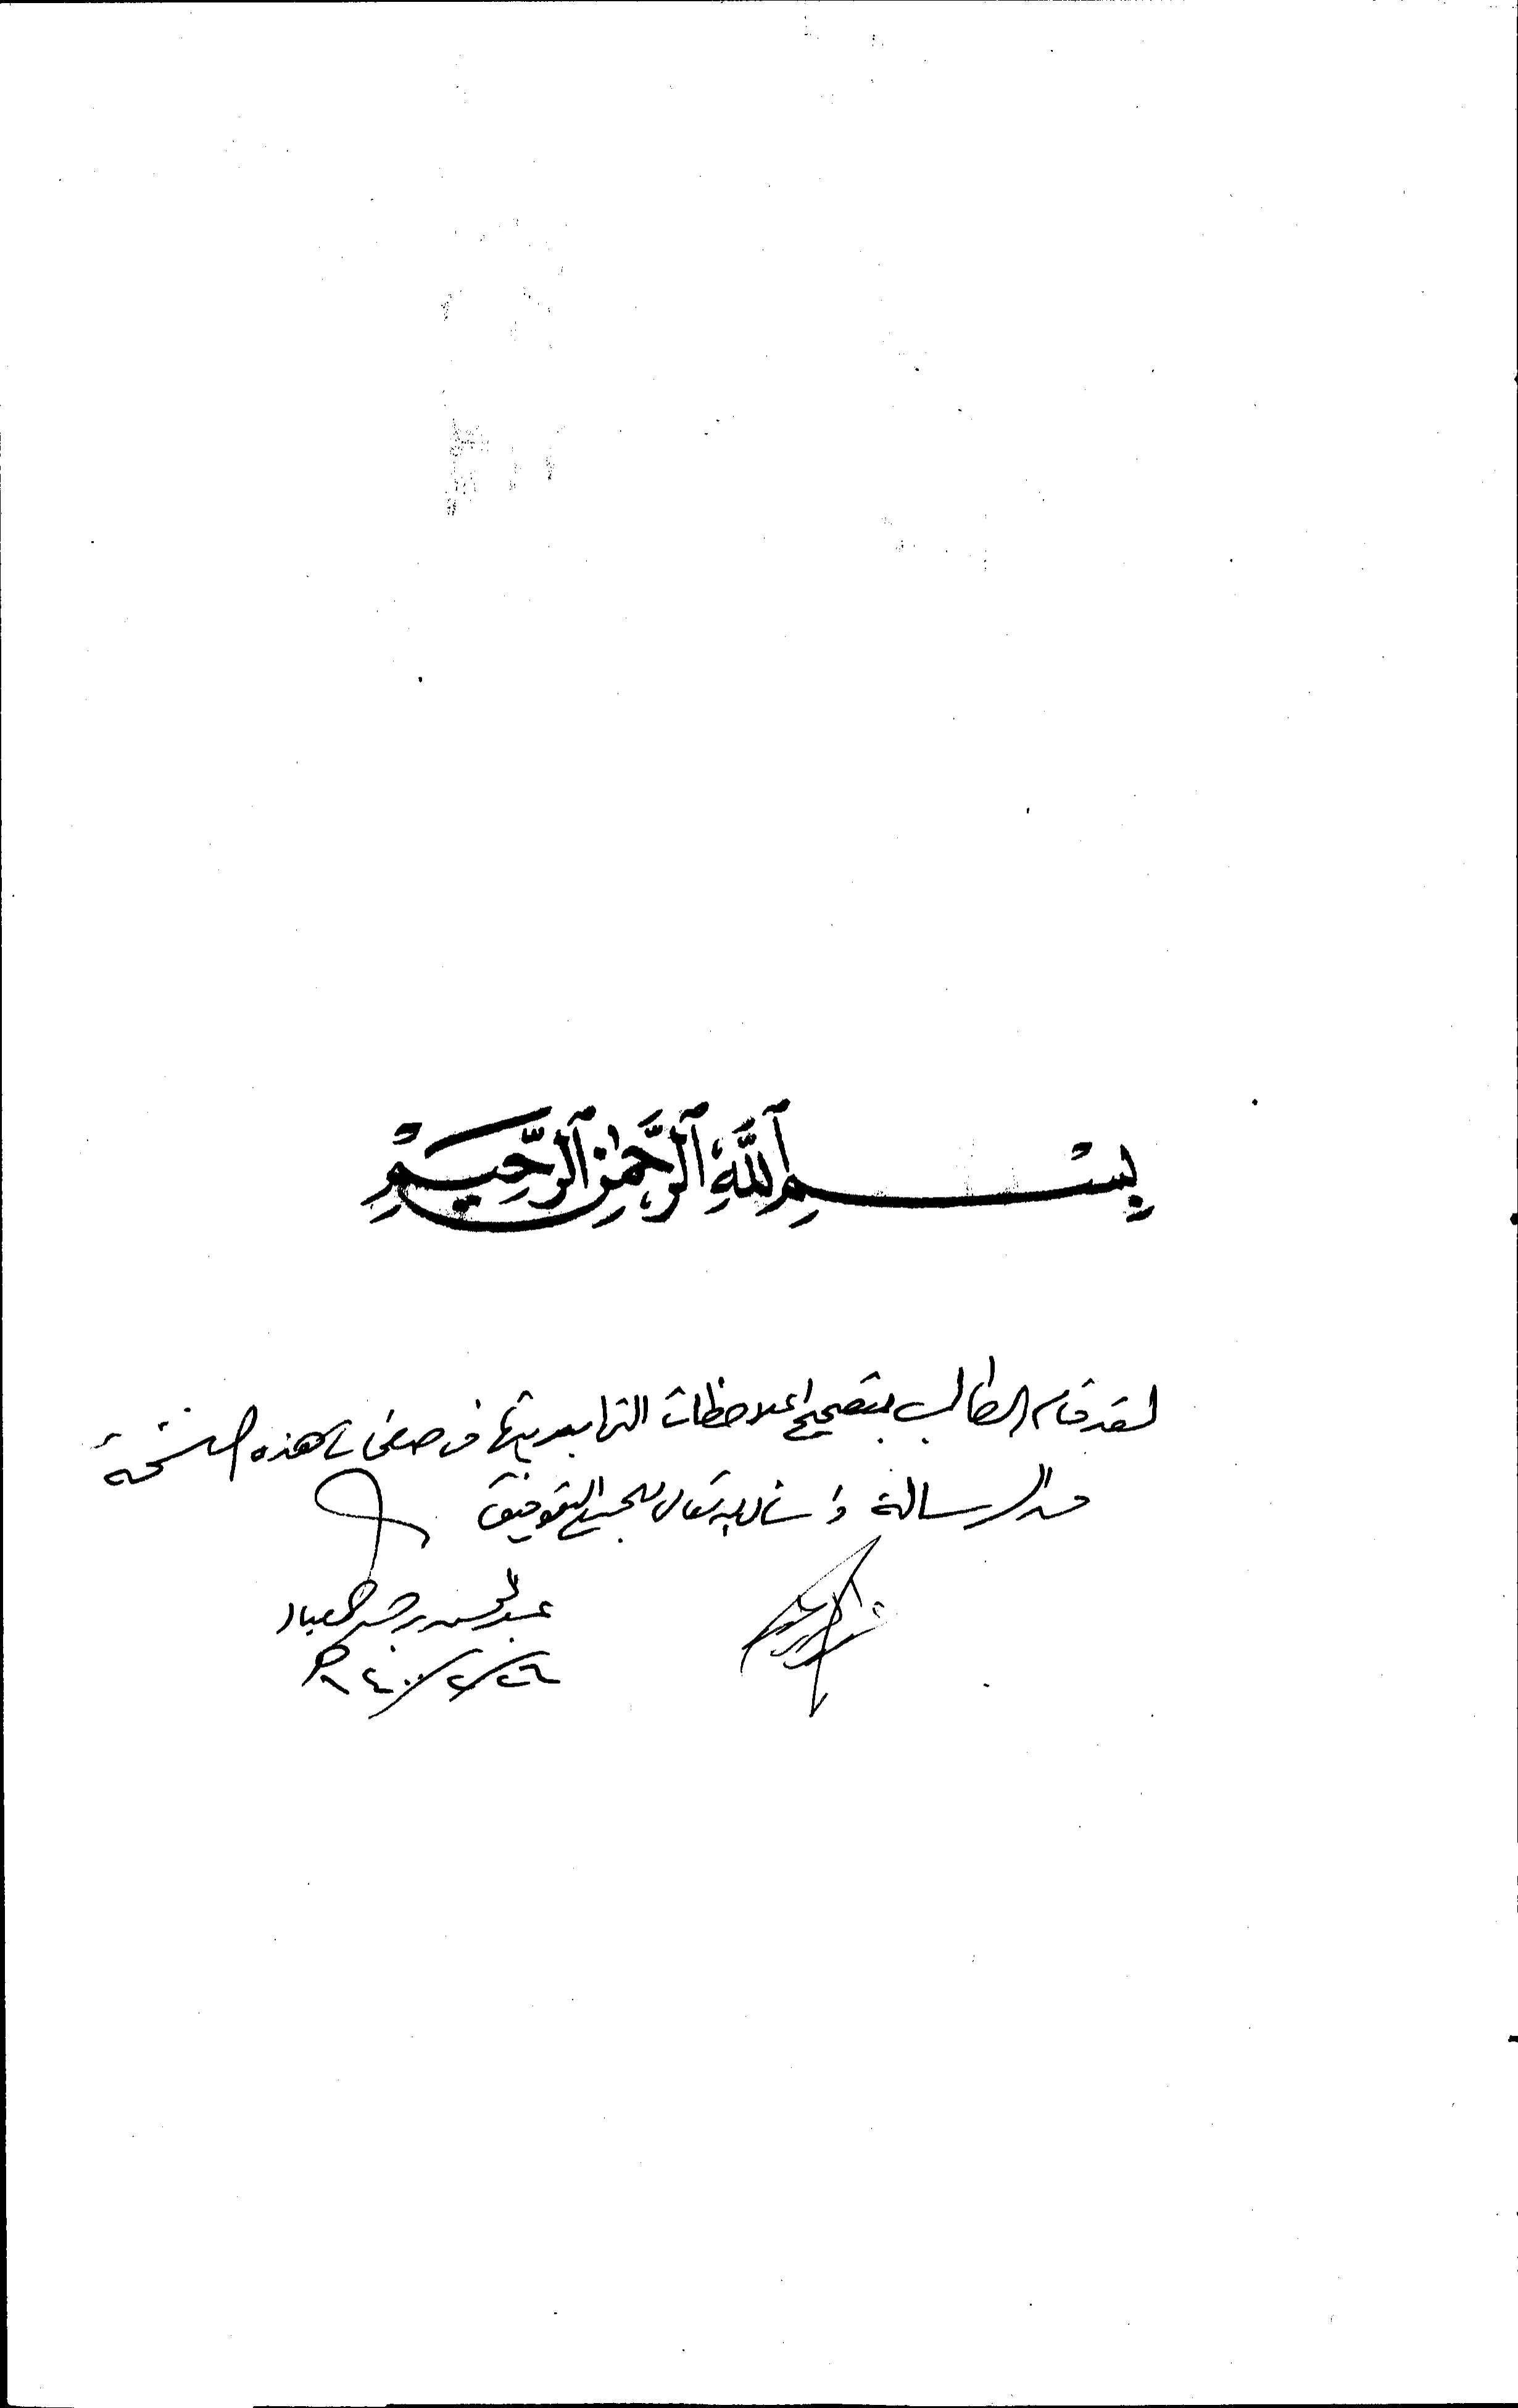 بِسْمِ ٱللَّهِ ٱلرَّحْمَٰنِ ٱلرَّحِيمِ
لقد قام الطالب بتصحيح الملاحظات التي أبديتها في صفحات هذه النسخة
من الرسالة وأسأل الله تعالى للجميع التوفيق
عبد المحسن بن حمد العباد